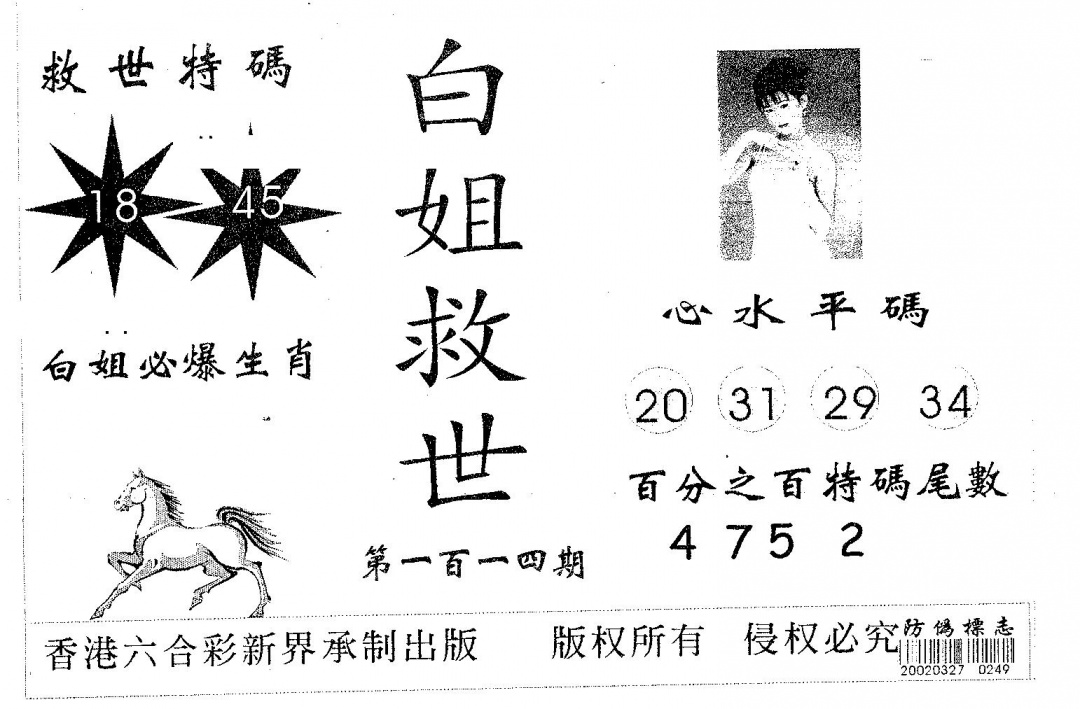 救世特碼
18 45
白姐必爆生肖
白姐救世
第一百一四期
心水平碼
20 31 29 34
百分之百特碼尾數
4 7 5 2
香港六合彩新界承制出版 版权所有 侵权必究
防偽標志
20020327 0249